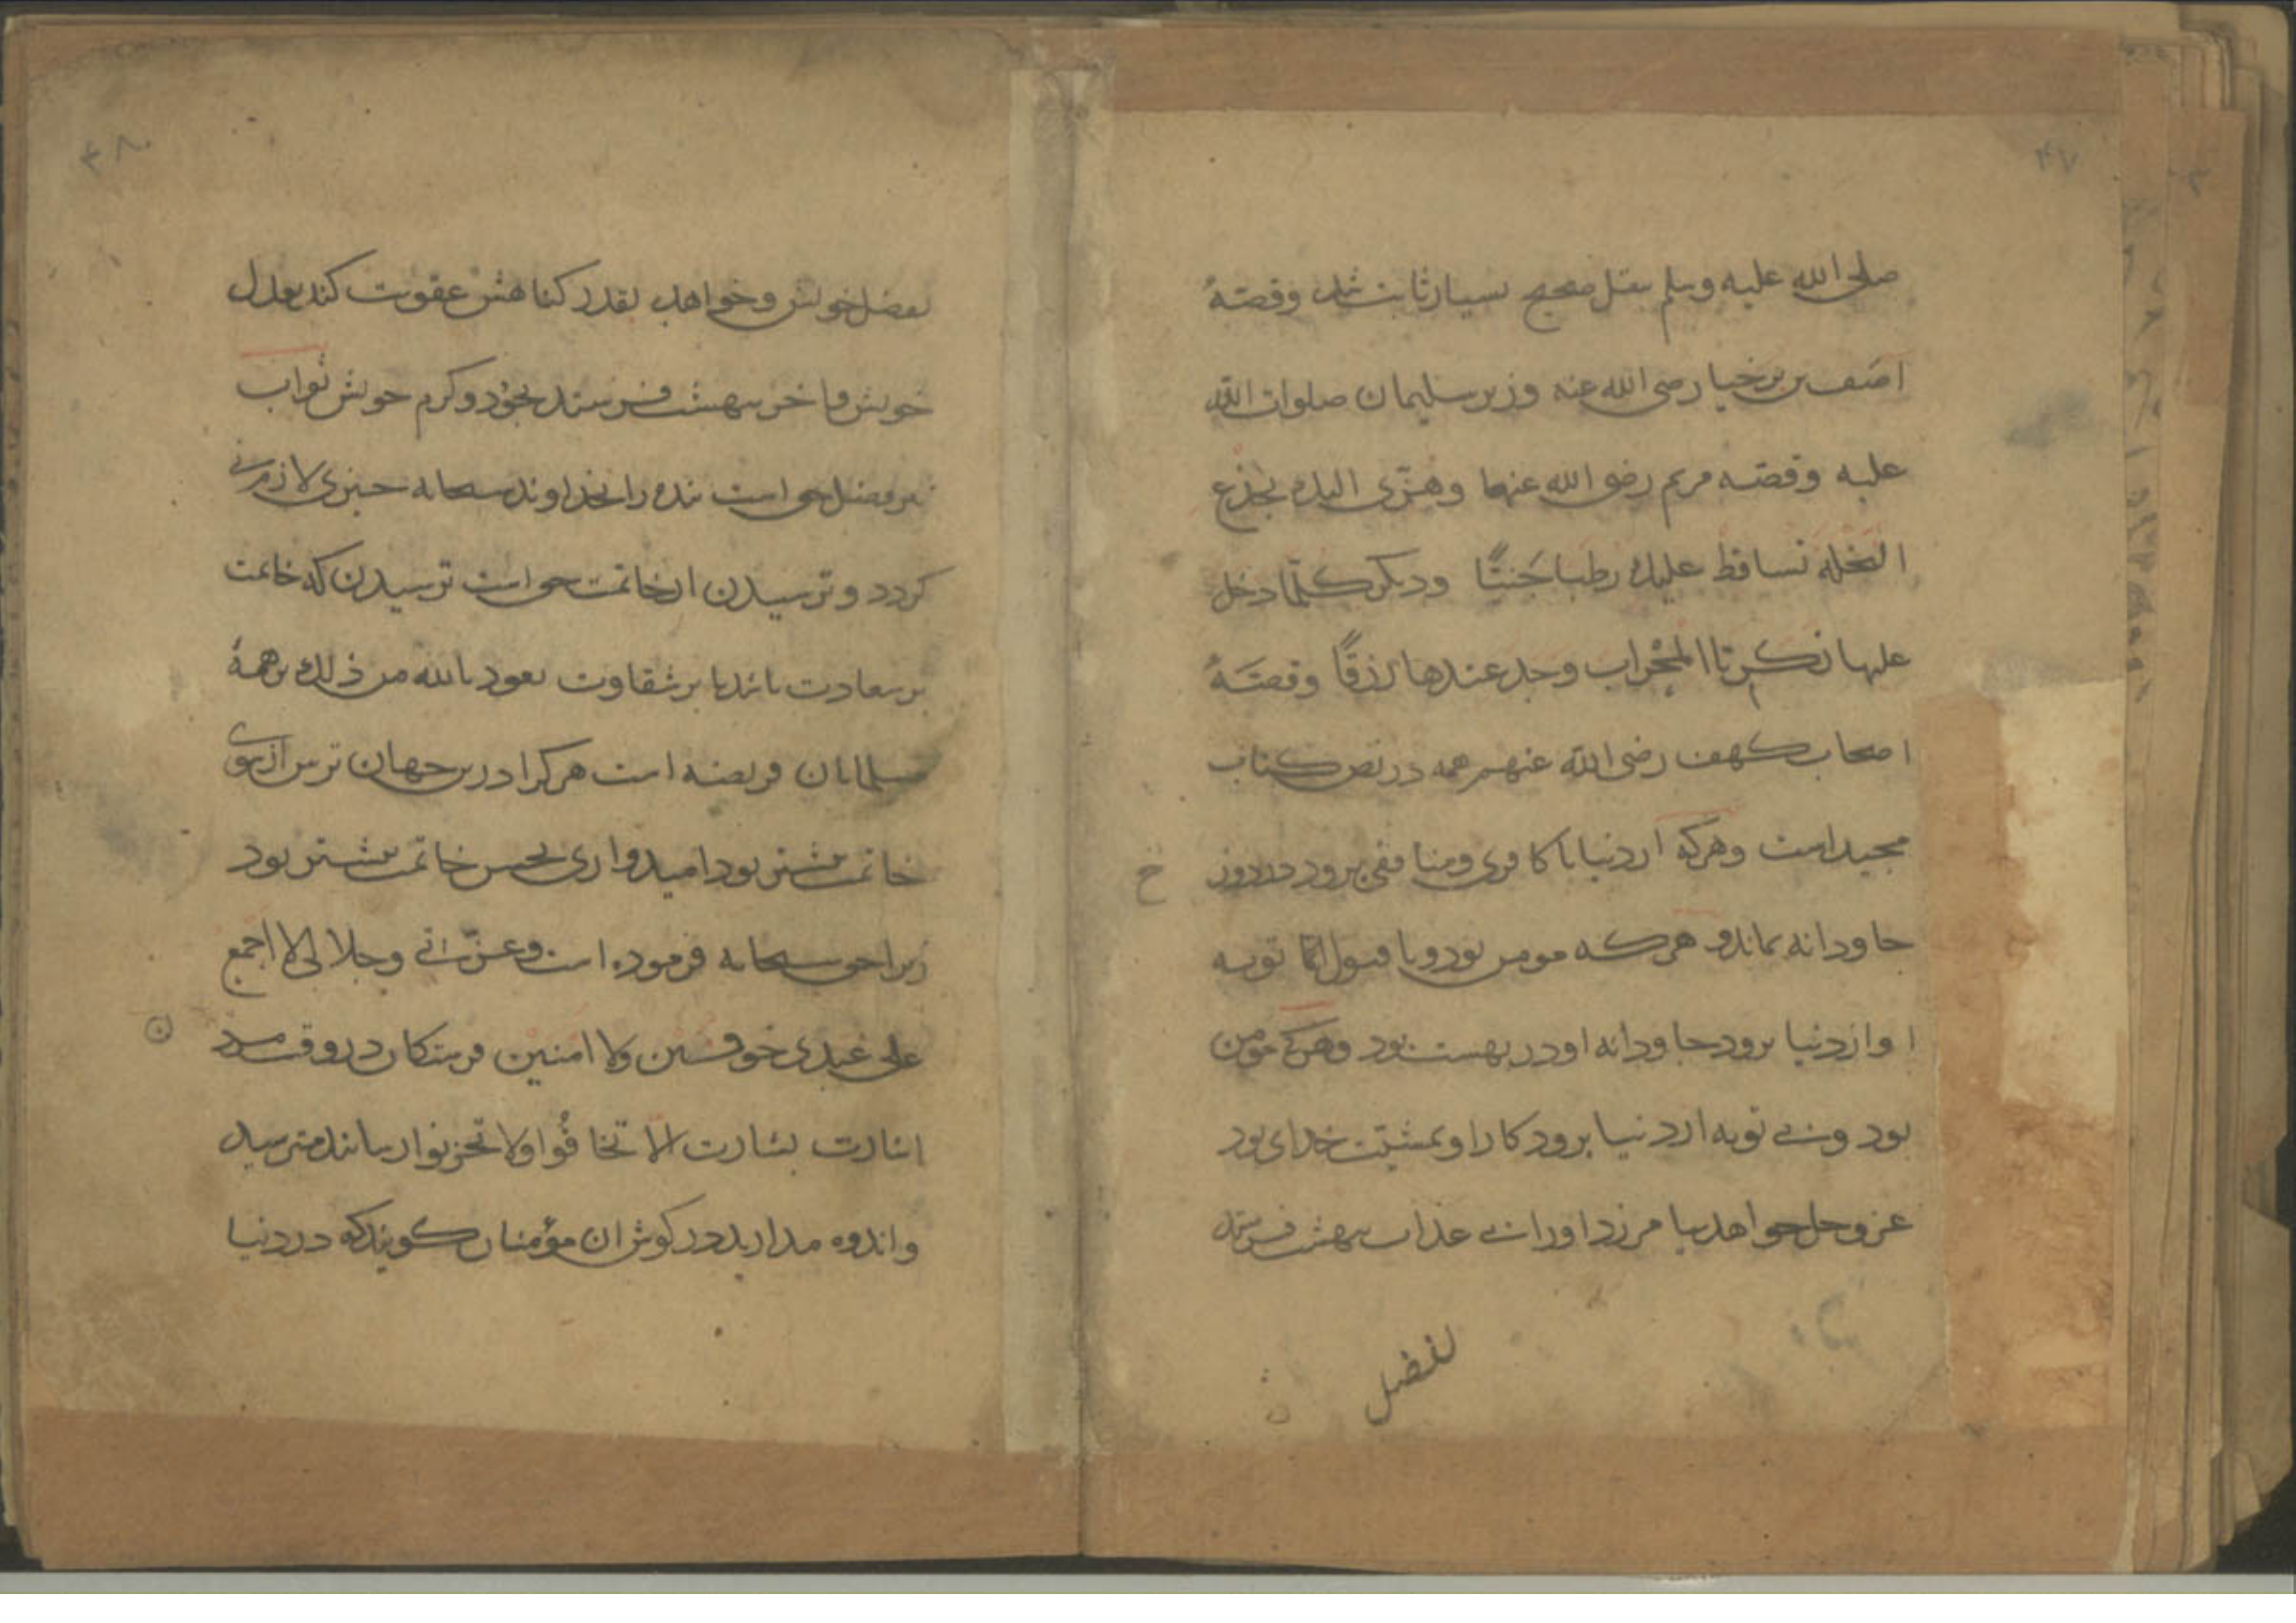 ۴۷
صلی الله علیه وسلم بنقل صحیح بسیار ثابت شد وقصّهٔ
اصف بن برخیا رضی الله عنه وزیر سلیمان صلوات الله
علیه وقصه مریم رضی الله عنها وهزّی الیک بجذع
النخله تساقط علیک رطبا جَنیًّا ودیکر کلّما دخل
علیها زکریّا المحْراب وجد عندها رزقًا وقصّهٔ
اصحاب کهف رضی الله عنهم همه در نص کتاب
مجید است وهرکه از دنیا با کافری ومنافقی برود در دوزخ
جاودانه بماند وهرکه مومن بود وبا قبول توبه
او از دنیا برود جاودانه او در بهست بود وهرکه مومن
بود وبی توبه از دنیا برود کار او بمشیّت خدای بود
عز وجل خواهد بیامرزد او را بی عذاب ببهشت فرستد
بفضل
۴۸
بفضل خویش وخواهد بقدر کناهش عقوبت کند بعدل
خویش وباخر ببهشت فرستد بجود وکرم خویش ثواب
بفضل حق است بنده را بخداوند سبحانه چیزی لازم نی
کردد وترسیدن از خاتمت حق است ترسیدن که خاتمت
بر سعادت باشد یا بر شقاوت نعوذ بالله من ذلک بر همهٔ
مسلمانان فریضه است هر کرا درین جهان ترس از سوی
خاتمت بیشتر بود امیدواری بحسن خاتمت بیشتر بود
زیرا حق سبحانه فرموده است وعزّتی وجلالی لا اجمع
علی عبدی خوفین ولا امنین فرشتکان در وقت مردن
اشارت بشارت الّا تخافُوا ولا تحزنوا رسانند مترسید
واندوه مدارید در کوش ان مؤمنان کویند که در دنیا